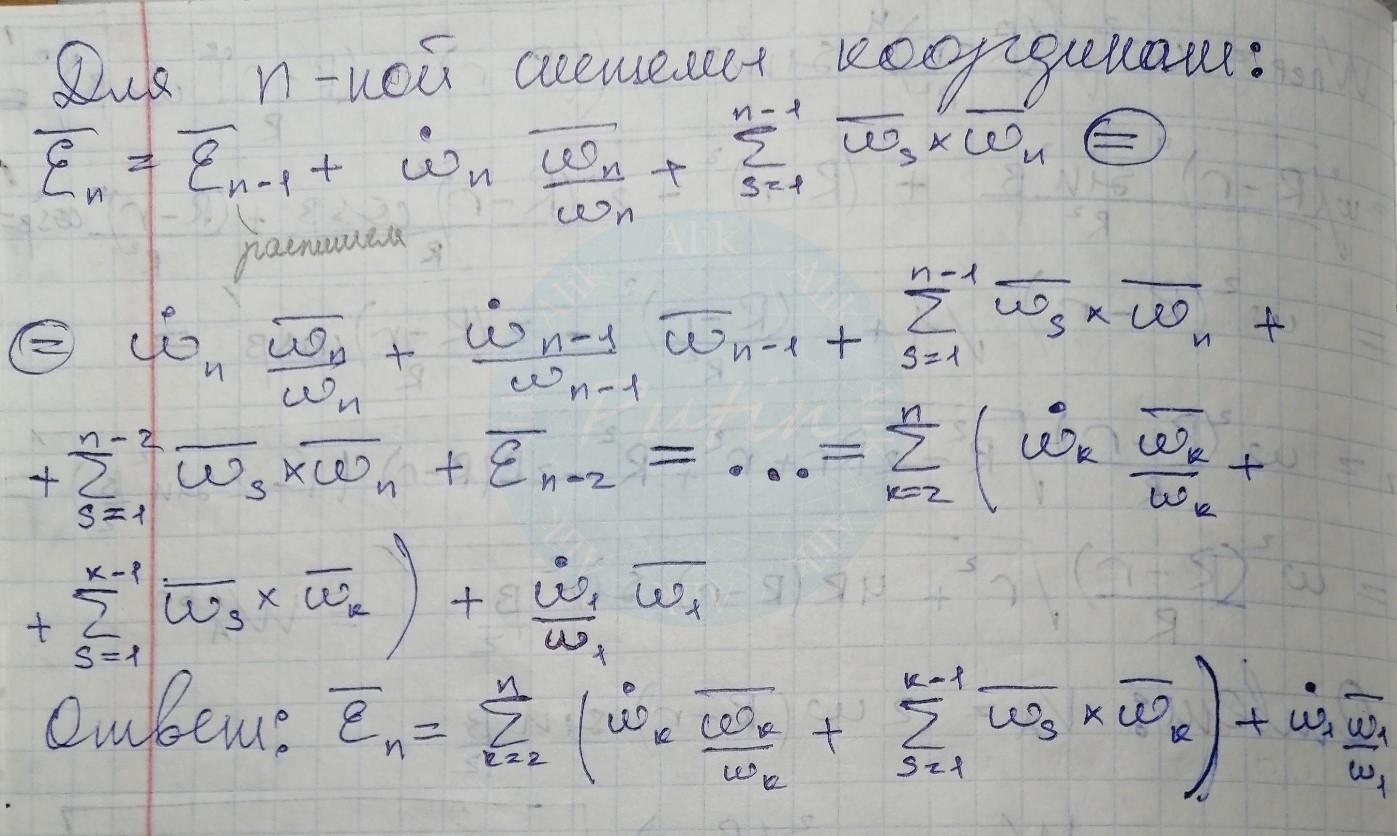 Для n-ной системы координат:
ε̅ₙ = ε̅ₙ₋₁ + ω̇ₙ ω̅ₙ/ωₙ + ∑_{s=1}^{n-1} ω̅ₛ × ω̅ₙ ⊜
распишем
⊜ ω̇ₙ ω̅ₙ/ωₙ + ω̇ₙ₋₁/ωₙ₋₁ ω̅ₙ₋₁ + ∑_{s=1}^{n-1} ω̅ₛ × ω̅ₙ +
+ ∑_{s=1}^{n-2} ω̅ₛ × ω̅ₙ + ε̅ₙ₋₂ = ... = ∑_{k=2}^{n} ( ω̇ₖ ω̅ₖ/ωₖ +
+ ∑_{s=1}^{k-1} ω̅ₛ × ω̅ₖ ) + ω̇₁/ω₁ ω̅₁
Ответ: ε̅ₙ = ∑_{k=2}^{n} ( ω̇ₖ ω̅ₖ/ωₖ + ∑_{s=1}^{k-1} ω̅ₛ × ω̅ₖ ) + ω̇₁ ω̅₁/ω₁
Alik
Alik
Alik